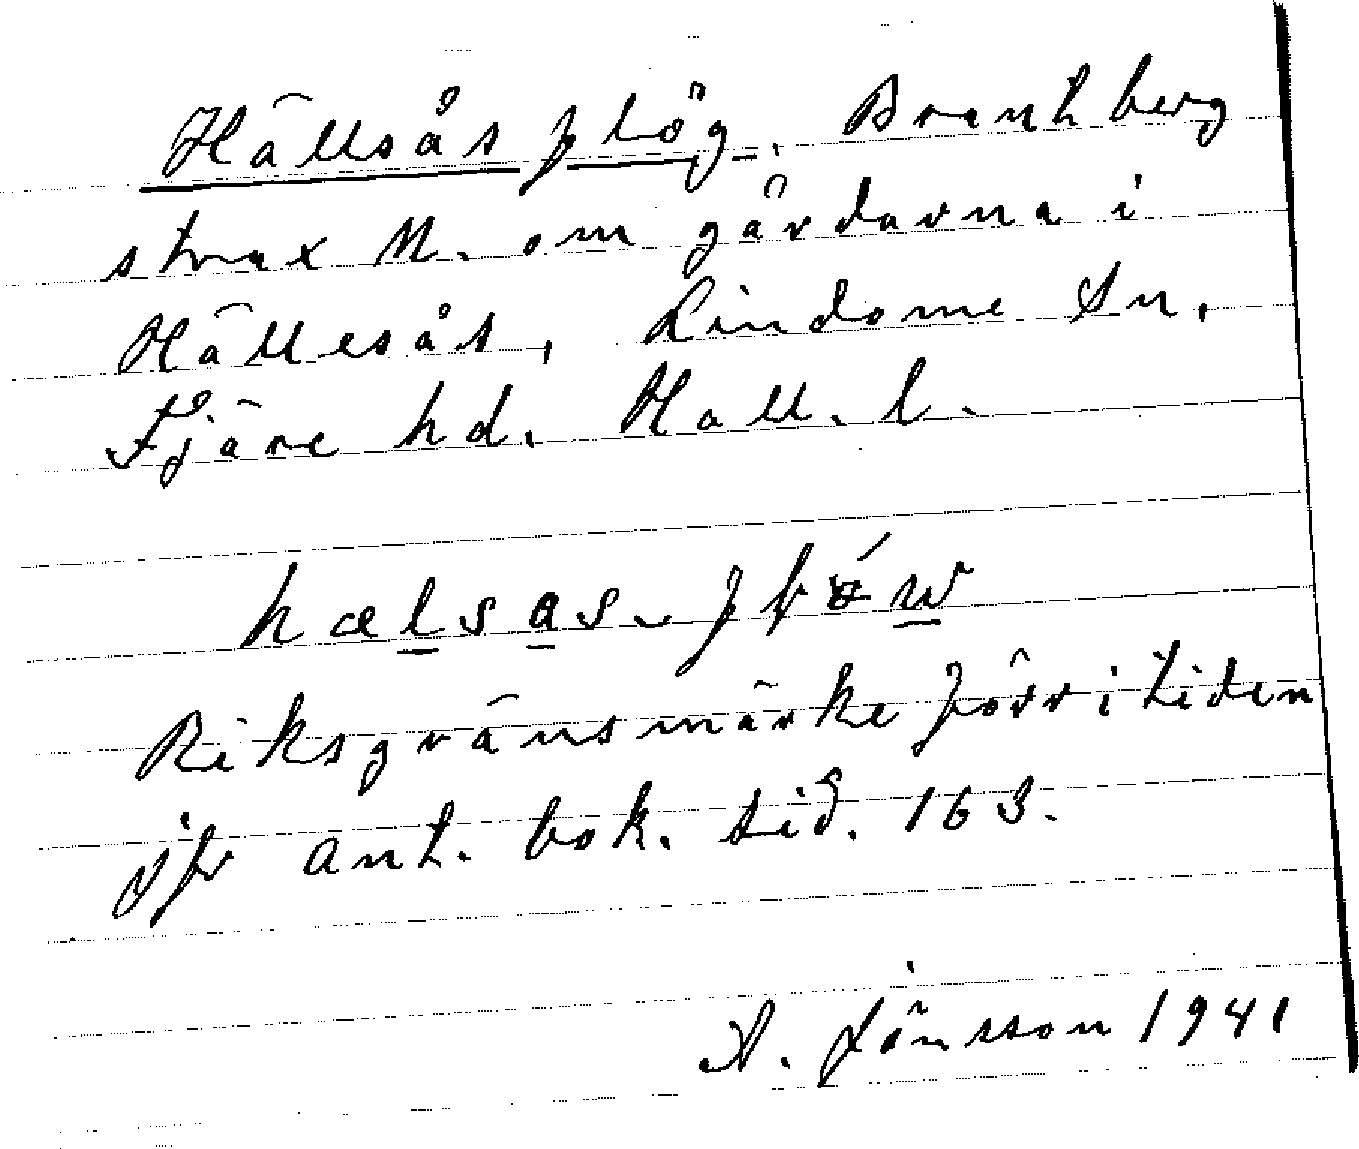 Hällsås flög. Brant berg
strax N. om gårdarna i
Hällesås, Lindome sn,
Fjäre hd. Hall. l.
Riksgränsmärke förr i tiden
jfr ant. bok. sid. 163.
A. Jönsson 1941